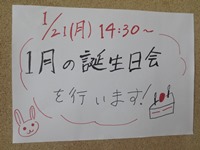 1/21(月) 14:30〜
1月の誕生日会
を行います!